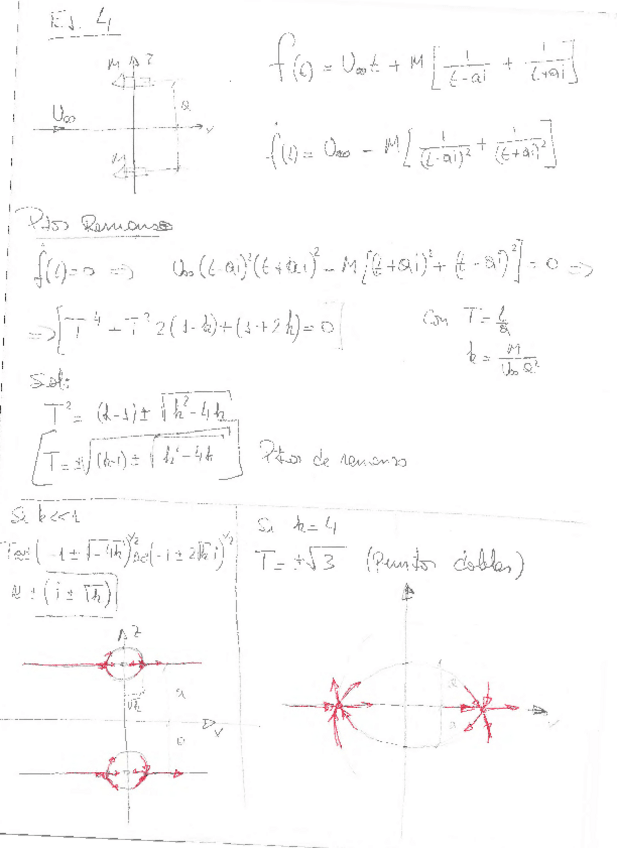 Ej. 4
M z
f(t) = U∞t + M[1/(t-ai) + 1/(t+ai)]
U∞ a
ḟ(t) = U∞ - M[1/(t-ai)² + 1/(t+ai)²]
M
Ptos Remanso
ḟ(t)=0 => U∞(t-ai)²(t+ai)² - M[(t+ai)² + (t-ai)²] = 0 =>
=> [T⁴ + T² 2(1-k) + (1+2k) = 0] Con T = t/a
k = M/(U∞ a²)
Sol:
T² = (k-1) ± √(k²-4k)
[T = ±√((k-1) ± √(k²-4k))] Ptos de remanso
Si k<<1
T≈±(-1 ± √(-4k))^1/2 ≈±(-1 ± 2√k i)^1/2
≈ ± (i ± √k)
Si k = 4
T = ±√3 (Puntos dobles)
z
√k a
a
a
a